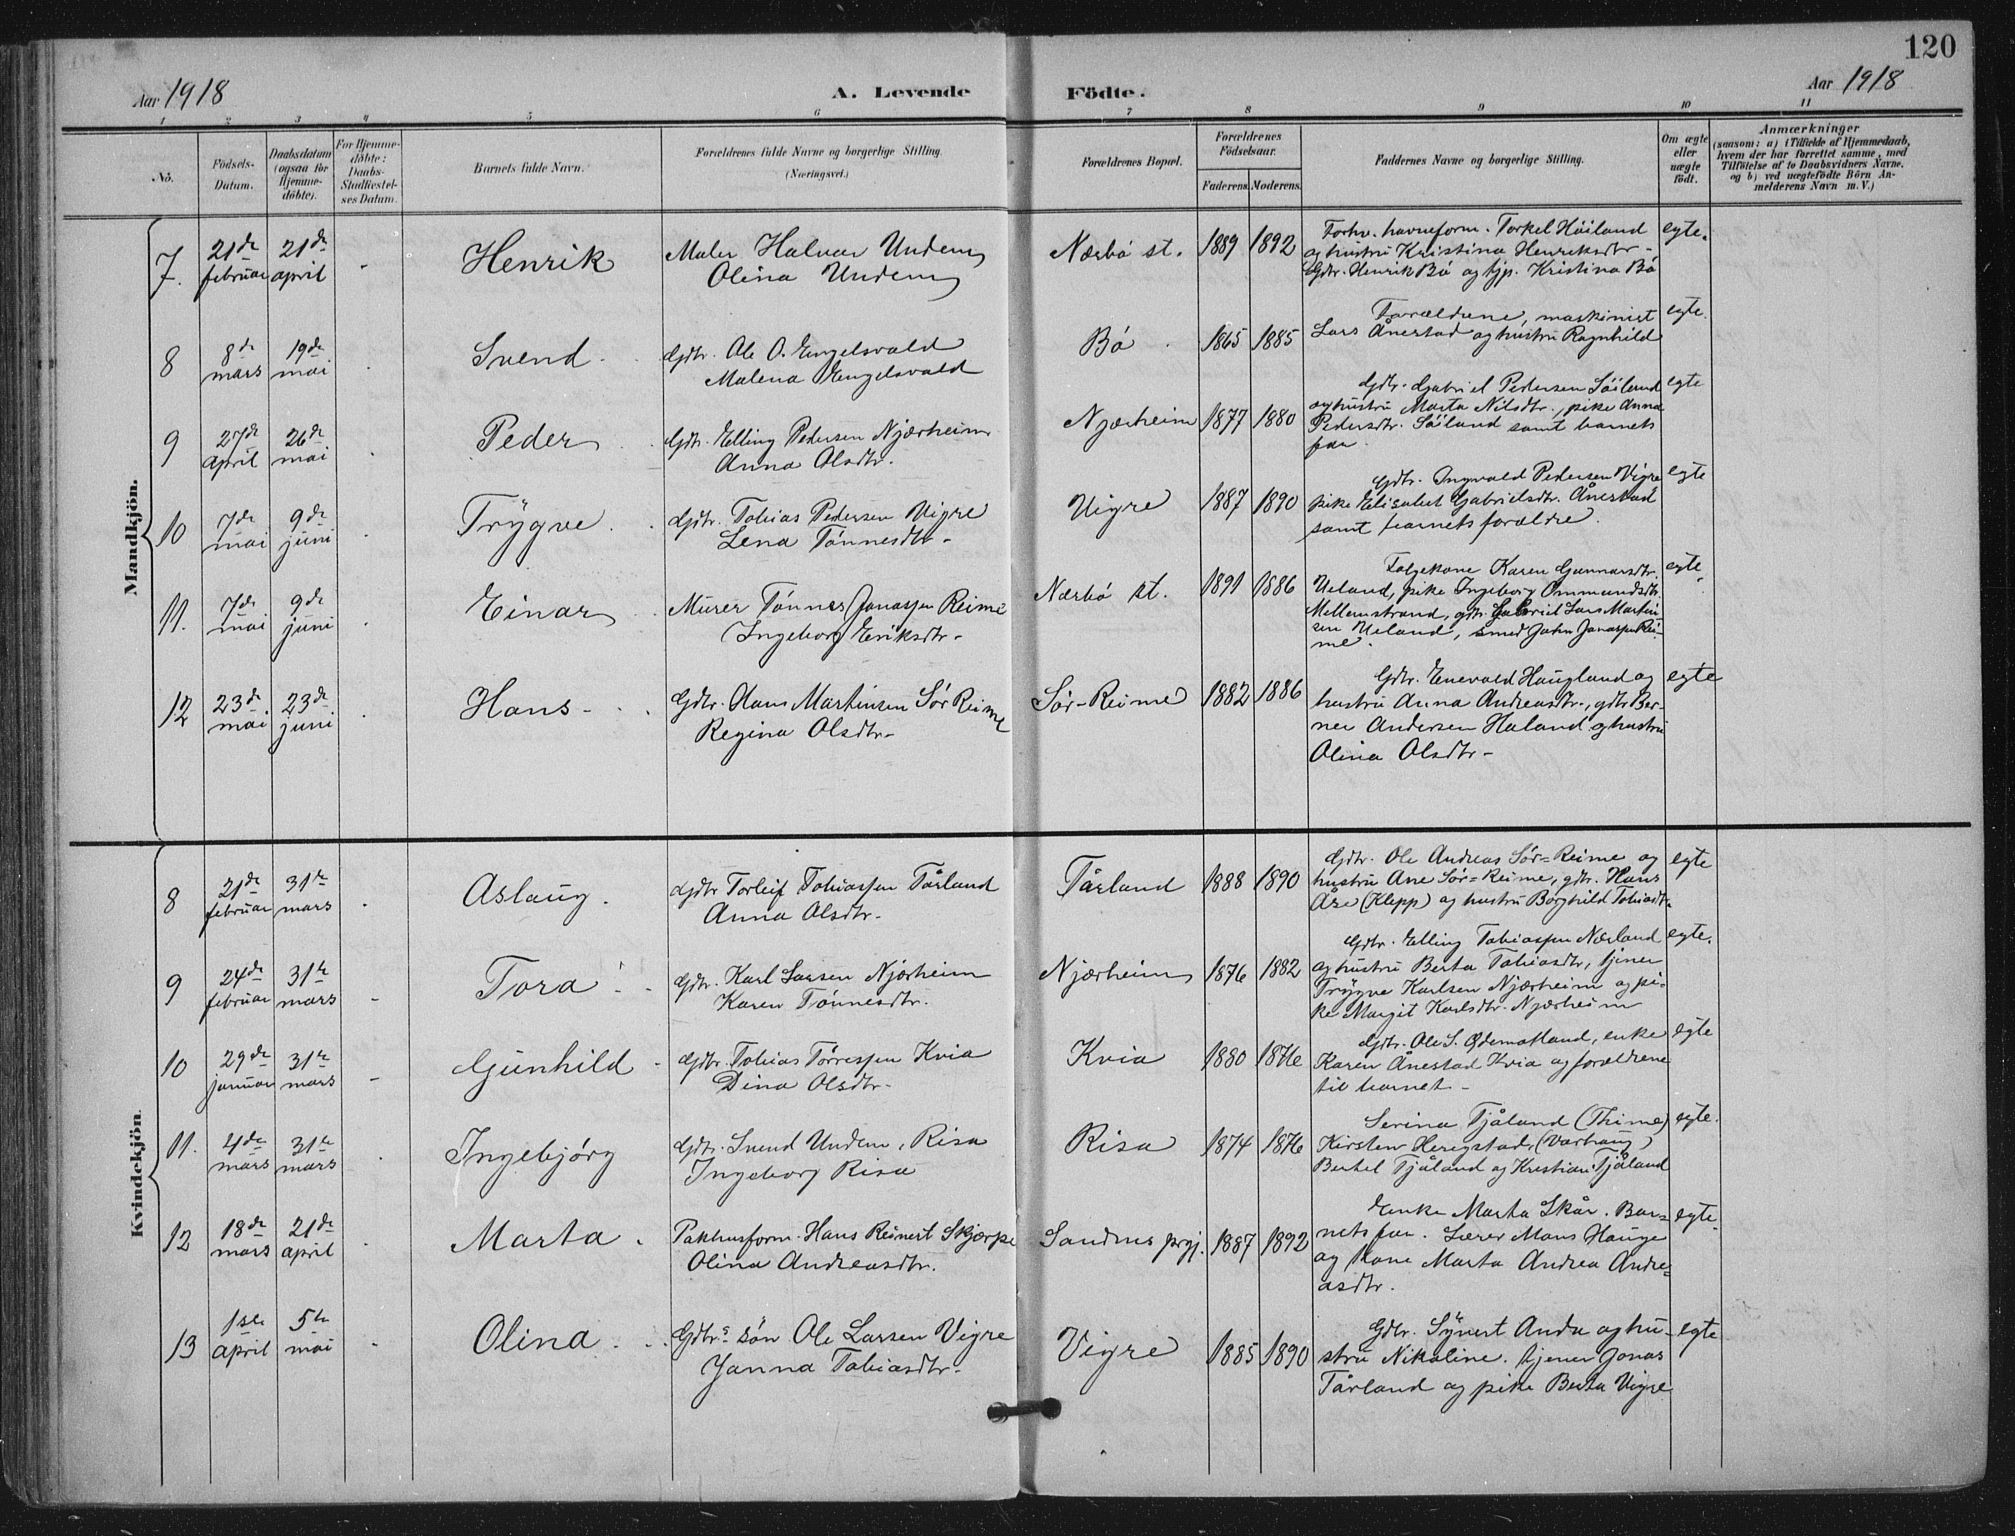 120
Aar 1918
A. Levende
Födte.
Aar 1918
1 2 3 4 5 6 7 8 9 10 11
No.
Födsels-
Datum.
Daabsdatum
(ogsaa for
Hjemme-
döbte).
For Hjemme-
döbte:
Daabs-
Stadfæstel-
ses Datum.
Barnets fulde Navn.
Forældrenes fulde Navne og borgerlige Stilling.
(Næringsvei.)
Forældrenes Bopæl.
Forældrenes
Födselsaar.
Faderens. Moderens.
Faddernes Navne og borgerlige Stilling.
Om ægte
eller
uægte
födt.
Anmærkninger
(saasom: a) i Tilfælde af Hjemmedaab,
hvem der har forrettet samme, med
Tilföielse af to Daabsvidners Navne.
og b) ved uægtefödte Börn An-
melderens Navn m. V.)
Mandkjön.
7.
21de
februar
21de
april
Henrik
Maler Halvar Undem
Olina Undem
Nærbø st.
1889 1892
Forhv. havneform. Torkel Höiland
og hustru Kristina Henriksdtr -
Gdtr. Henrik Bø og tjp. Kristina Bø
egte.
8
8de
mars
19de
mai
Svend
Gdtr. Ole O. Engelsvold
Malena Engelsvold
Bø
1865 1885
Forældrene, maskinist
Lars Ånestad og hustru Ragnhild
egte.
9
27de
april
26de
mai
Peder
Gdtr. Elling Pedersen Njærheim
Anna Olsdtr.
Njærheim
1877 1880
Gdtr. Gabriel Pedersen Söiland
og hustru Marta Nilsdtr., pike Anna
Pedersdtr. Söiland samt barnets
far
egte
10
7de
mai
9de
juni
Trygve
Gdtr. Tobias Pedersen Vigre
Lena Tönnesdtr.
Vigre
1887 1890
Gdtr. Ingvald Pedersen Vigre
pike Elisabet Gabrielsdtr. Ånestad
samt barnets forældre.
egte
11.
7de
mai
9de
juni
Einar
Murer Tönnes Jonassen Reime
Ingeborg Eriksdtr.
Nærbø st.
1891 1886
Følgekone Karen Gunnarsdtr.
Ueland, pike Ingeborg Ommundsdtr.
Mellemstrand, gdtr. Gabriel Lars Martin
sen Ueland, smed John Jonassen Rei-
me.
egte.
12
23de
mai
23de
juni
Hans
Gdtr. Hans Martinsen Sør Reime
Regina Olsdtr.
Sør-Reime
1882 1886
Gdtr. Enevald Haugland og
hustru Anna Andreasdtr., gdtr Ber-
ner Andersen Haland og hustru
Olina Olsdtr -
egte
Kvindekjön.
8
21de
februar
31te
mars
Aslaug.
Gdtr Torleif Tobiassen Tårland
Anna Olsdtr.
Tårland
1888 1890
Gdtr. Ole Andreas Sør=Reime og
hustru Ane Sør=Reime, gdtr. Hans
Åse (Klepp) og hustru Borghild Tobiasdtr.
egte
9
24de
februar
31te
mars
Tora
Gdtr. Karl Larsen Njærheim
Karen Tönnesdtr.
Njærheim
1876 1882
Gdtr. Elling Tobiassen Nærland
og hustru Berta Tobiasdtr, tjener
Trygve Karlsen Njærheim og pi-
ke Margit Karlsdtr. Njærheim
egte.
10
29de
januar
31te
mars
Gunhild
Gdtr. Tobias Tørressen Kvia
Dina Olsdtr.
Kvia
1880 1876
Gdtr. Ole S. Ødemotland, enke
Karen Ånestad Kvia og forældrene
til barnet -
egte
11.
4de
mars
31te
mars
Ingebjørg
Gdtr. Svend Undem, Risa
Ingeborg Risa
Risa
1874 1876
Serina Tjåland (Thime)
Kirsten Heregstad, (Varhaug)
Bertel Tjåland og Kristian Tjåland
egte.
12
18de
mars
21de
april
Marta
Pakhusform. Hans Reinert Skjærpe
Olina Andreasdtr.
Sandnes prgj.
1887 1892
Enke Marta Skår. Bar=
nets far. Lærer Mons Hauge
og kone Marta Andrea Andre=
asdtr.
egte.
13
1ste
april
5te
mai
Olina
Gdtr.s søn Ole Larsen Vigre
Janna Tobiasdtr.
Vigre
1885 1890
Gdtr. Synert Anda og hu-
stru Nikoline. tjener Jonas
Tårland og pike Berta Vigre
egte